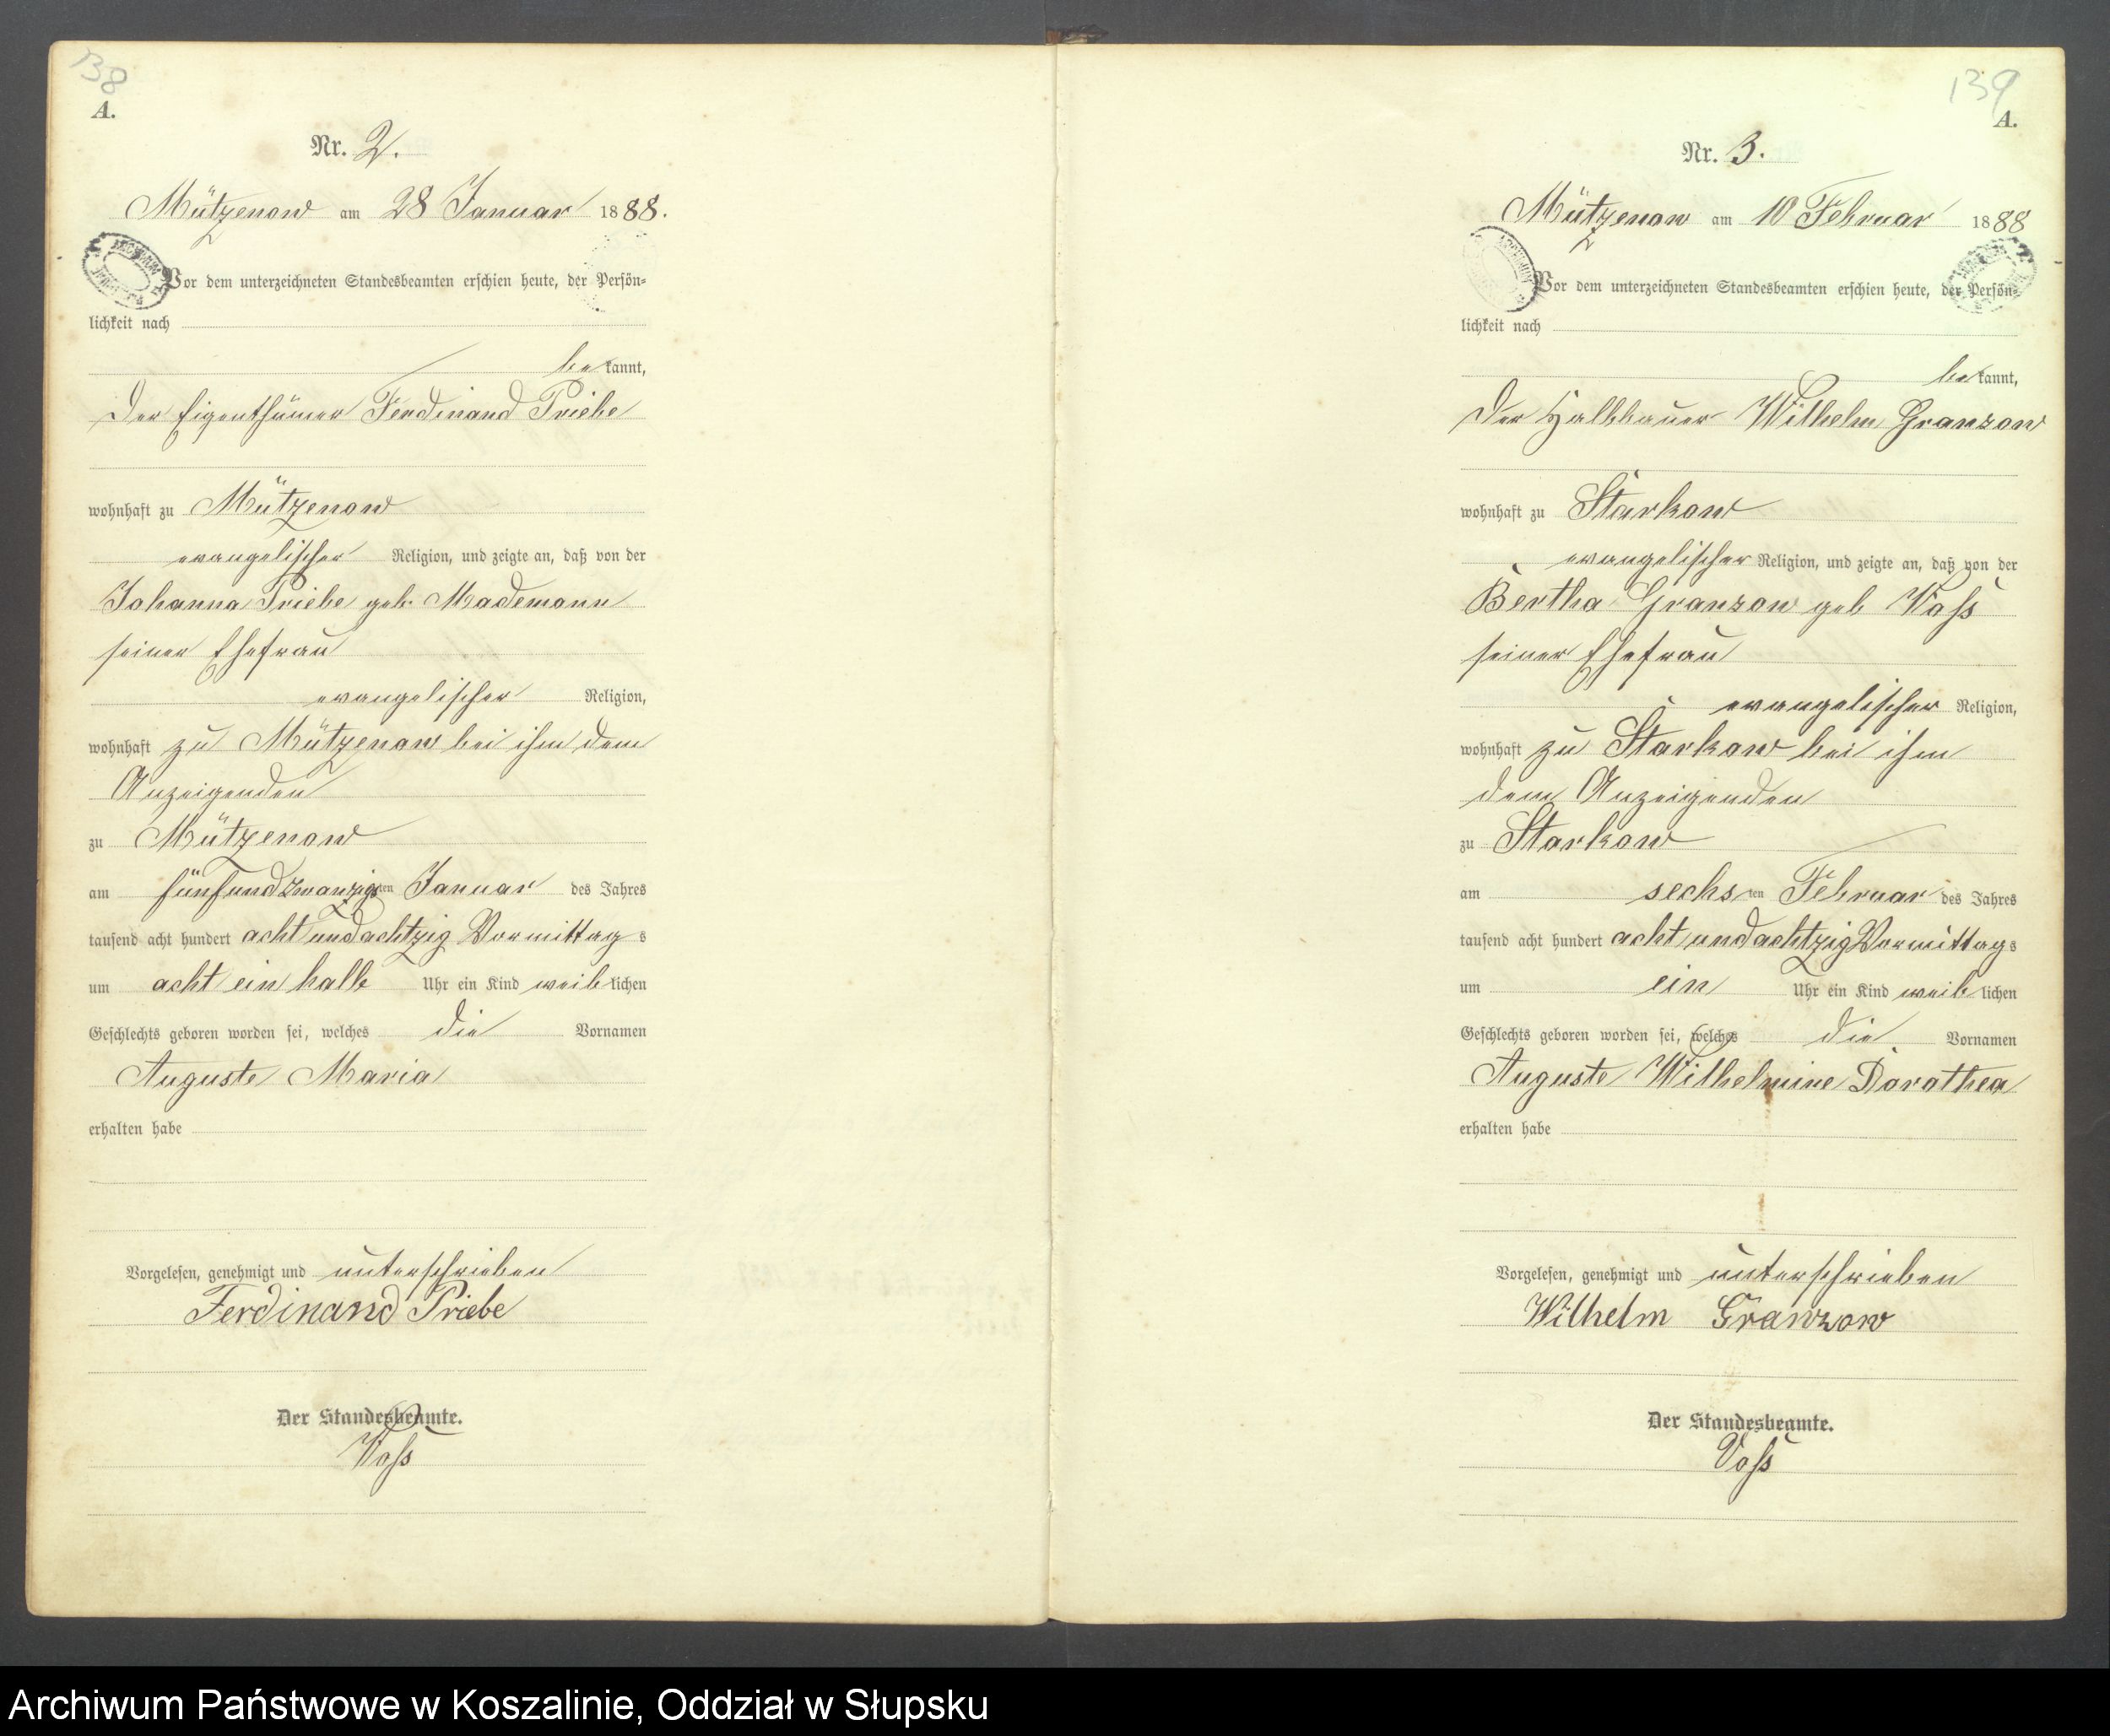 138
A.
Nr. 2.
Mützenow am 28 Januar 1888.
Vor dem unterzeichneten Standesbeamten erschien heute, der Persön-
lichkeit nach
bekannt,
der Eigenthümer Ferdinand Priebe
wohnhaft zu Mützenow
evangelischer Religion, und zeigte an, daß von der
Johanna Priebe geb. Mademann
seiner Ehefrau
evangelischer Religion,
wohnhaft zu Mützenow bei ihm dem
Anzeigenden
zu Mützenow
am fünfundzwanzigsten Januar des Jahres
tausend acht hundert acht und achtzig Vormittags
um acht ein halb Uhr ein Kind weiblichen
Geschlechts geboren worden sei, welches die Vornamen
Auguste Maria
erhalten habe
Vorgelesen, genehmigt und unterschrieben
Ferdinand Priebe
Der Standesbeamte.
Voß
139
A.
Nr. 3.
Mützenow am 10 Februar 1888
Vor dem unterzeichneten Standesbeamten erschien heute, der Persön-
lichkeit nach
bekannt,
der Halbbauer Wilhelm Granzow
wohnhaft zu Starkow
evangelischer Religion, und zeigte an, daß von der
Bertha Granzow geb Voß
seiner Ehefrau
evangelischer Religion,
wohnhaft zu Starkow bei ihm
dem Anzeigenden
zu Starkow
am sechsten Februar des Jahres
tausend acht hundert acht und achtzig Vormittags
um ein Uhr ein Kind weiblichen
Geschlechts geboren worden sei, welches die Vornamen
Auguste Wilhelmine Dorothea
erhalten habe
Vorgelesen, genehmigt und unterschrieben
Wilhelm Granzow
Der Standesbeamte.
Voß
Archiwum Państwowe w Koszalinie, Oddział w Słupsku